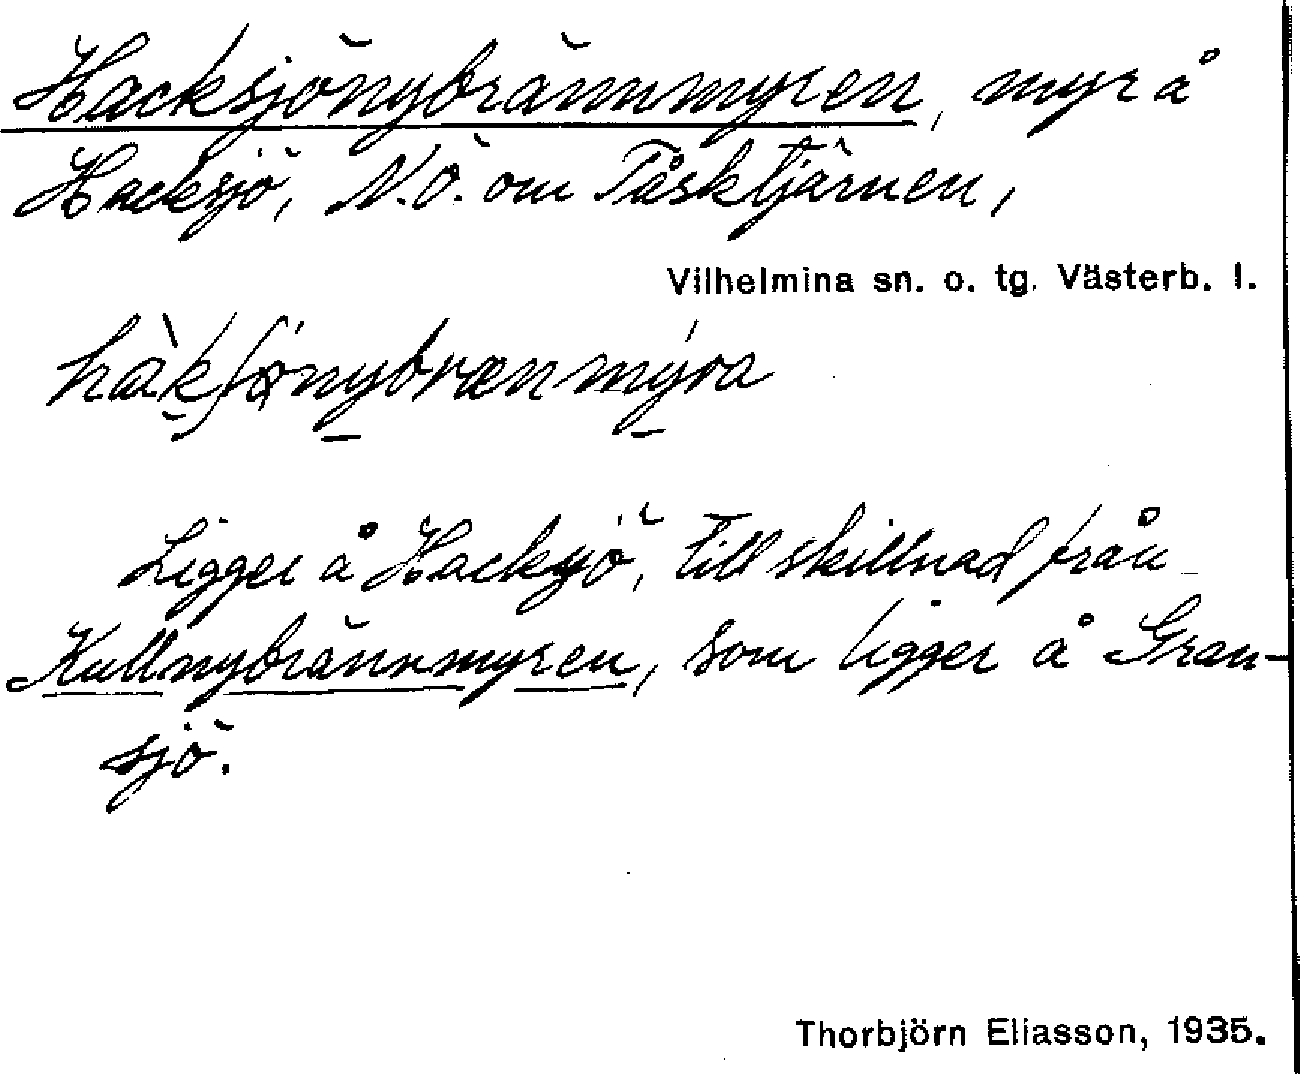 Hacksjönybrännmyren, myr å
Hacksjö, N.Ö. om Påsktjärnen,
Vilhelmina sn. o. tg. Västerb. l.
Ligger å Hacksjö, till skillnad från
Kullnybrännmyren, som ligger å Gran-
sjö.
Thorbjörn Eliasson, 1935.